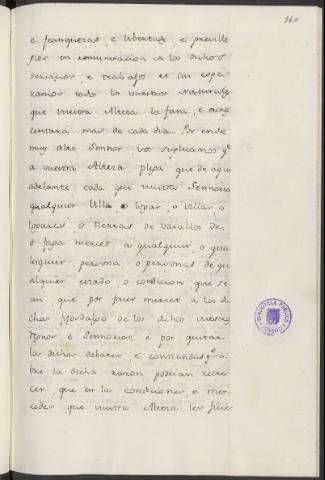 160
e franquezas, e libertades, e preville
gios en remuneracion de los dichos
servicios, e trabajos: et assi espe
ramos todos los vuestros naturales
que vuestra Alteza lo fara, e acre
centará mas de cada dia. Por ende
muy alto Sennor, vos suplicamos q.e
a vuestra Alteza plega que de aqui
adelante, cada que vuestra Sennoria
qualquier Villa o logar, o Villas o
logares, o tierras de vasallos de,
o faga merced a qualquier, o qua
lesquier persona, o personas de qu
alquier estado, o condicion que se
an, que por facer merced a los di
chos Fijosdalgo de los dichos vuestros
Regnos e Sennorios, e por quitar
las dichas debates, e contiendas q.e so
bre la dicha razon podrian recre
cer, que en las condiciones, e mer
cedes que vuestra Alteza les ficie
BIBLIOTECA PUBLICA
TOLEDO